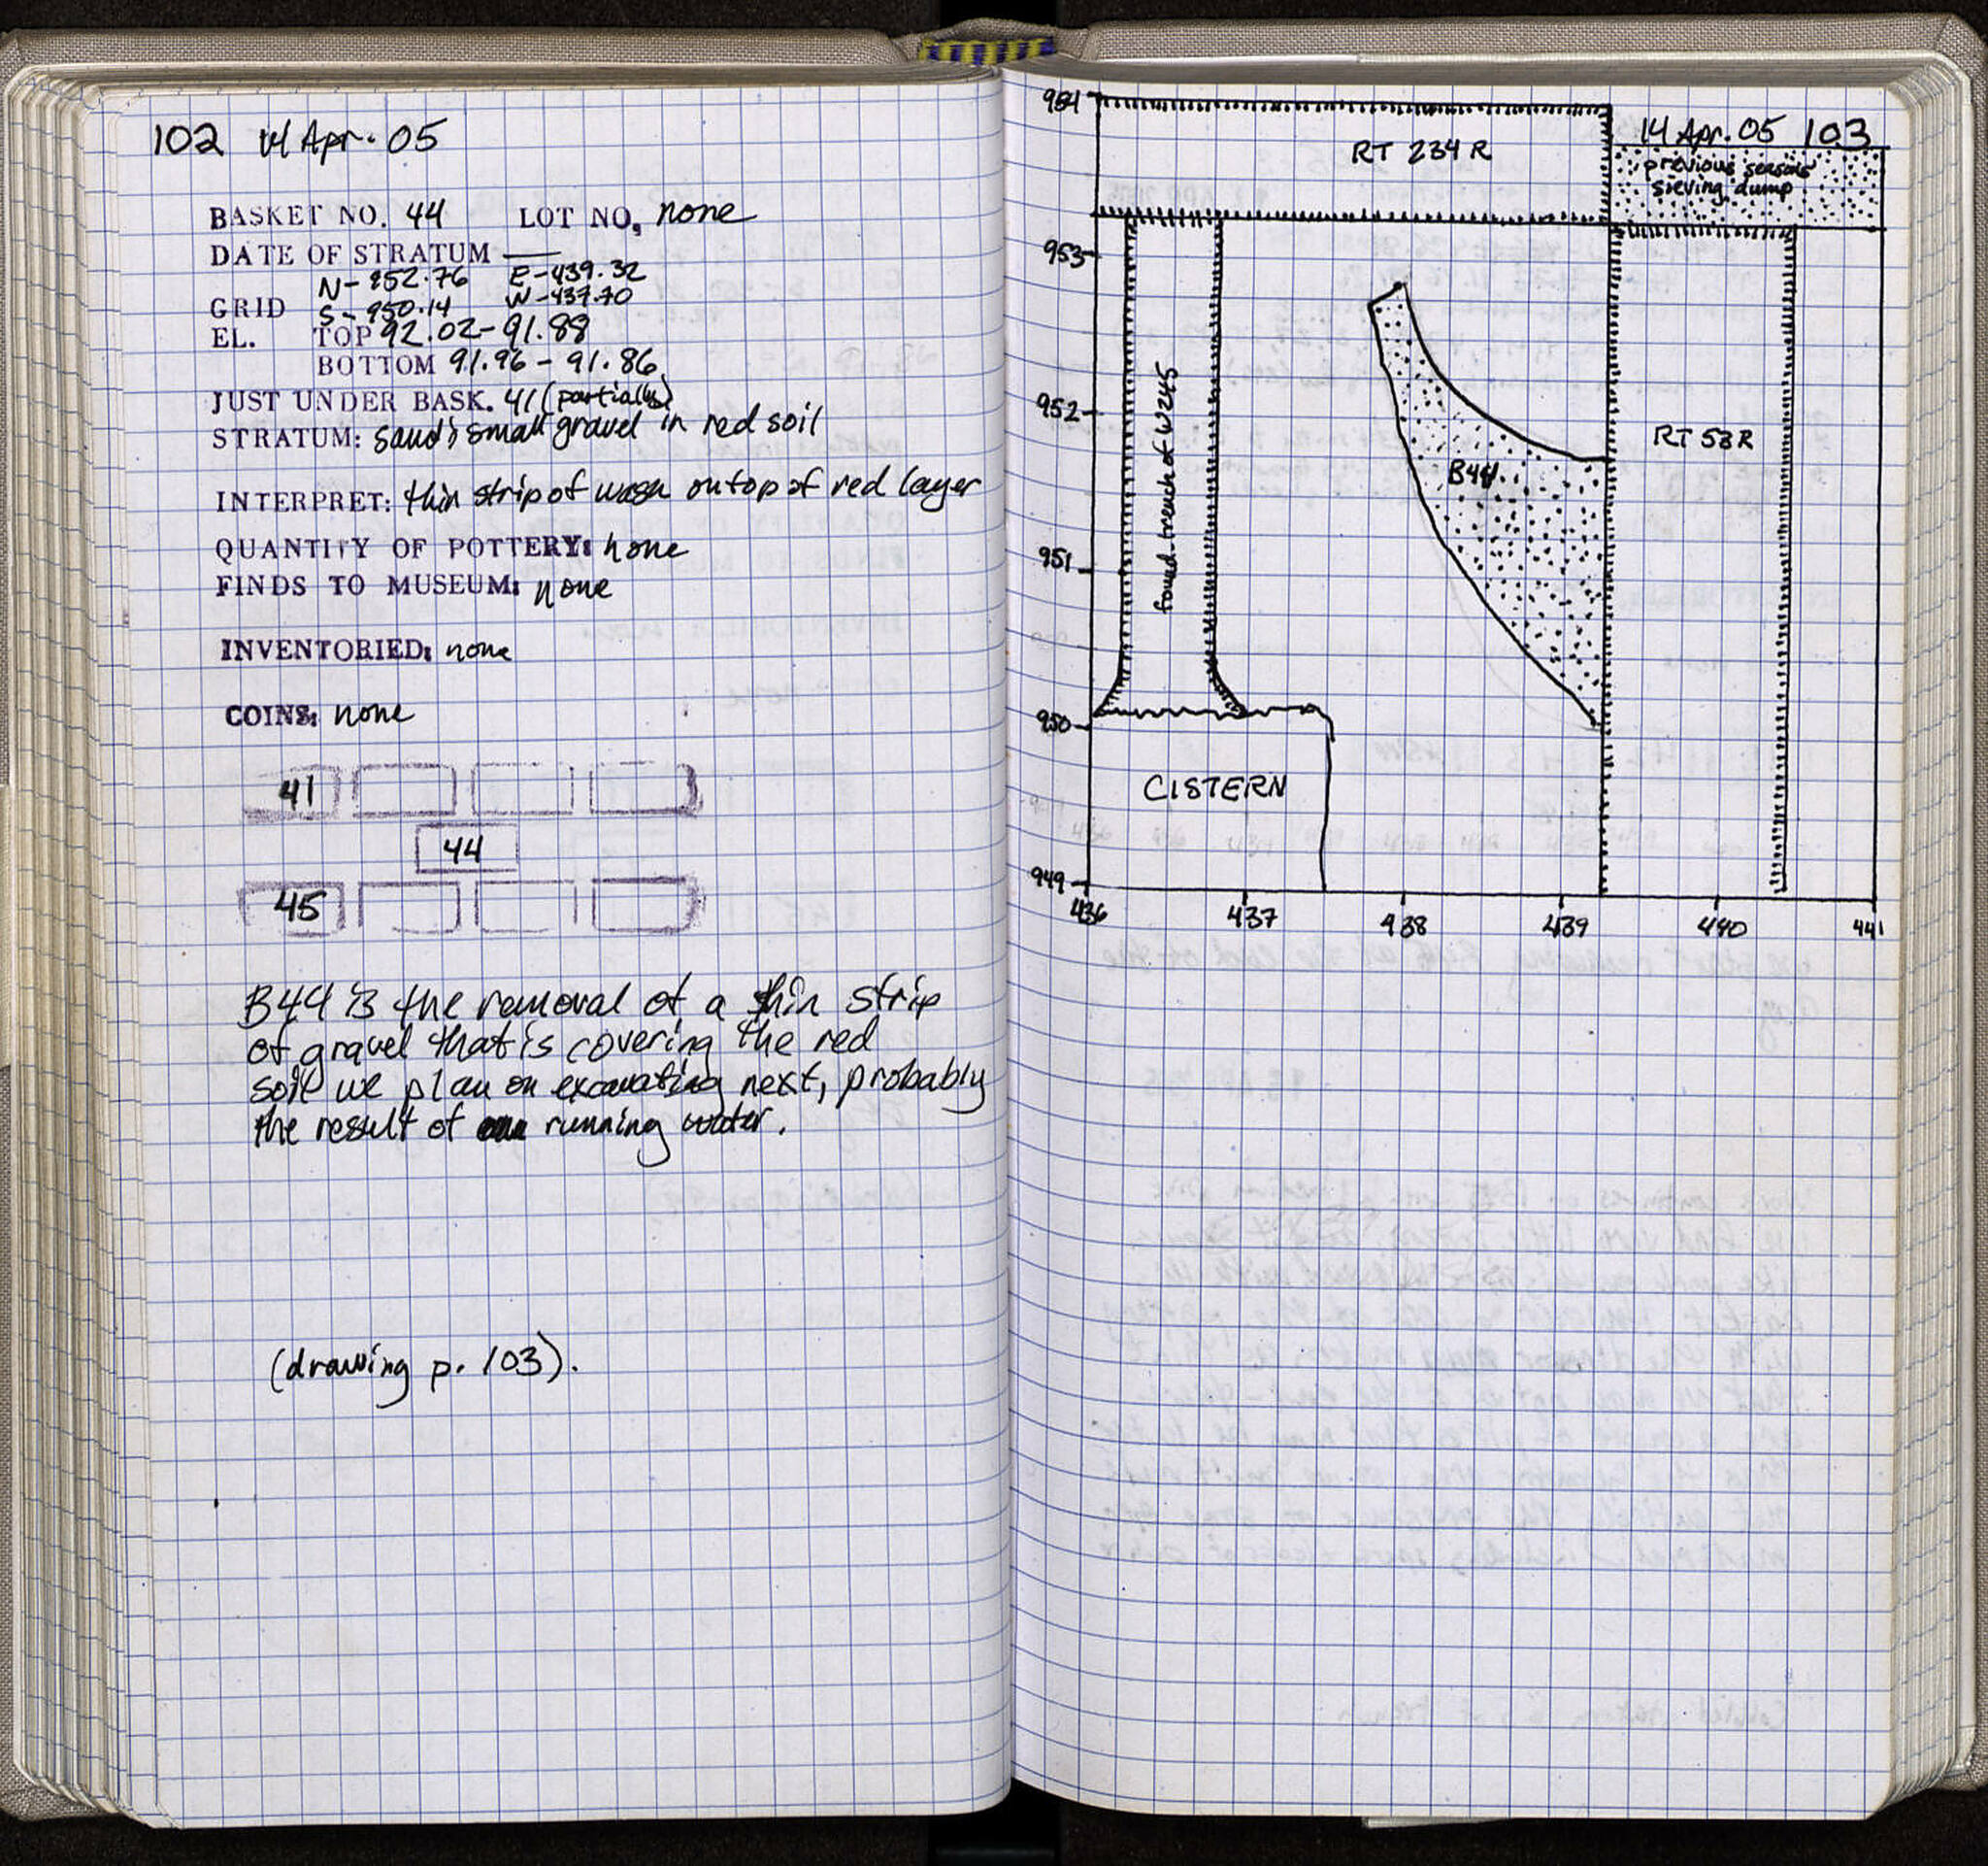 102 14 Apr. 05
BASKET NO. 44 LOT NO. none
DATE OF STRATUM —
N- 952.76 E-439.32
GRID S- 950.14 W-437.70
EL. TOP 92.02-91.88
BOTTOM 91.96 - 91.86
JUST UNDER BASK. 41 (partially)
STRATUM: sand & small gravel in red soil
INTERPRET: thin strip of wash on top of red layer
QUANTITY OF POTTERY: none
FINDS TO MUSEUM: none
INVENTORIED: none
COINS: none
41
44
45
B44 is the removal of a thin strip
of gravel that is covering the red
soil we plan on excavating next, probably
the result of running water.
(drawing p. 103).
14 Apr. 05 103
954
RT 234 R
previous seasons
sieving dump
953
952
951
950
949
found. trench of W245
B44
RT 58R
CISTERN
436 437 438 439 440 441